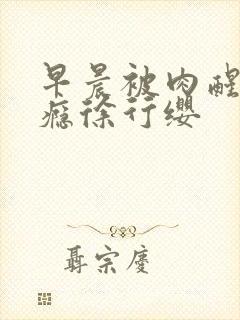 早晨被肉醒
瘾徐行缨
聂宗庆